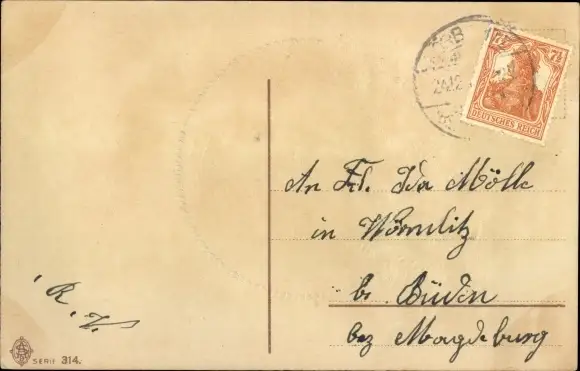 7½ 7½
DEUTSCHES REICH
24.12.
An Frl. Ida Mölle
in Wörmlitz
b. Büden
bez Magdeburg
R. V.
SERIE 314.